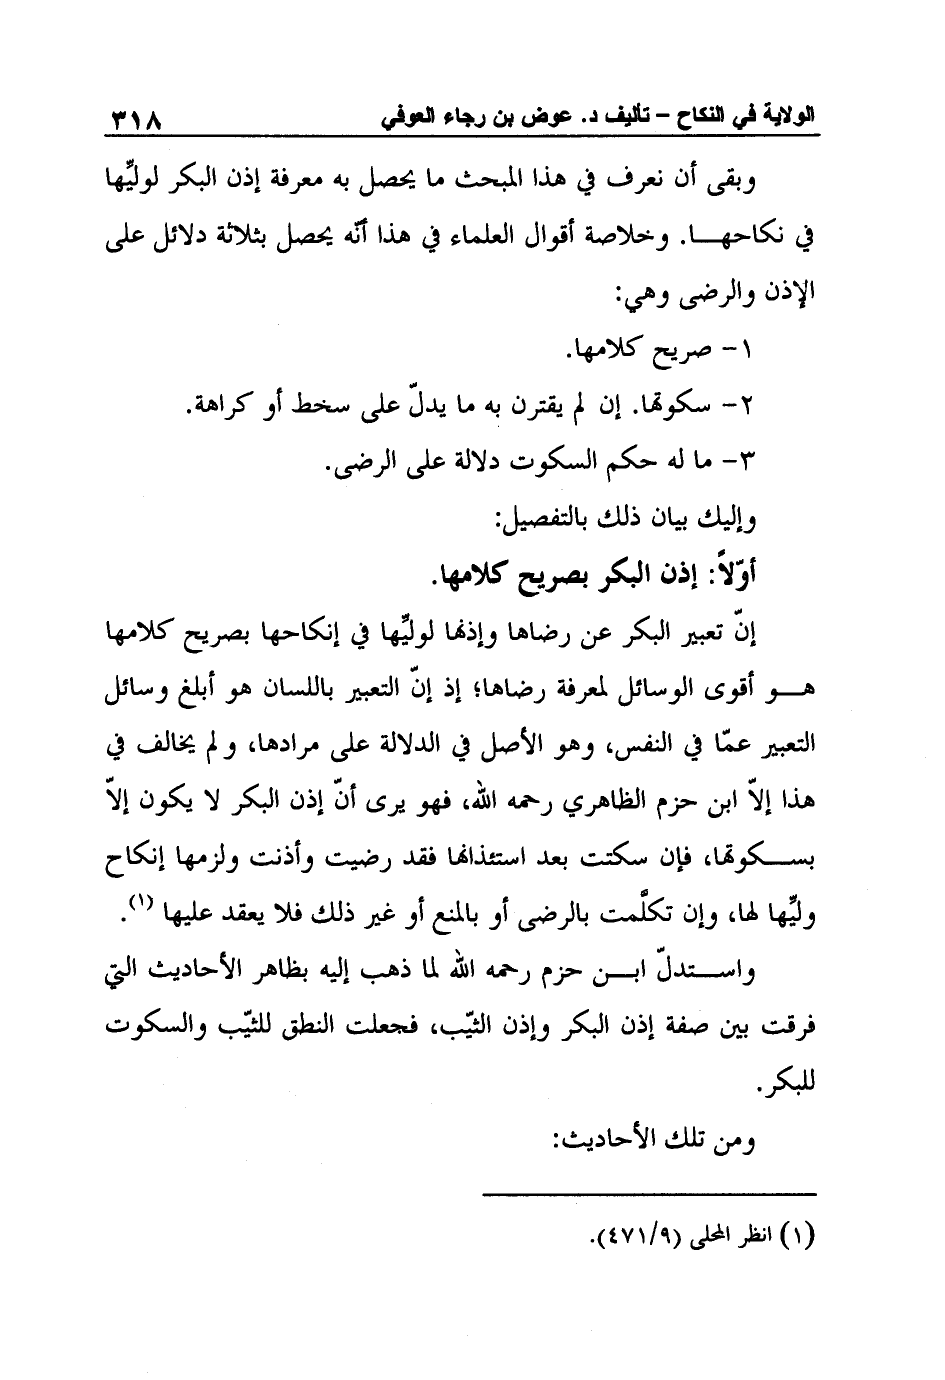 الولاية في النكاح – تأليف د. عوض بن رجاء العوفي ٣١٨
وبقى أن نعرف في هذا المبحث ما يحصل به معرفة إذن البكر لوليِّها
في نكاحهـــا. وخلاصة أقوال العلماء في هذا أنّه يحصل بثلاثة دلائل على
الإذن والرضى وهي:
١- صريح كلامها.
٢- سكوتها. إن لم يقترن به ما يدلّ على سخط أو كراهة.
٣- ما له حكم السكوت دلالة على الرضى.
وإليك بيان ذلك بالتفصيل:
أوّلاً: إذن البكر بصريح كلامها.
إنّ تعبير البكر عن رضاها وإذنها لوليِّها في إنكاحها بصريح كلامها
هـــو أقوى الوسائل لمعرفة رضاها؛ إذ إنّ التعبير باللسان هو أبلغ وسائل
التعبير عمّا في النفس، وهو الأصل في الدلالة على مرادها، ولم يخالف في
هذا إلاّ ابن حزم الظاهري رحمه الله، فهو يرى أنّ إذن البكر لا يكون إلاّ
بســـكوتها، فإن سكتت بعد استئذانها فقد رضيت وأذنت ولزمها إنكاح
وليِّها لها، وإن تكلَّمت بالرضى أو بالمنع أو غير ذلك فلا يعقد عليها (١).
واســـتدلّ ابـــن حزم رحمه الله لما ذهب إليه بظاهر الأحاديث التي
فرقت بين صفة إذن البكر وإذن الثيّب، فجعلت النطق للثيّب والسكوت
للبكر.
ومن تلك الأحاديث:
(١) انظر المحلى (٤٧١/٩).